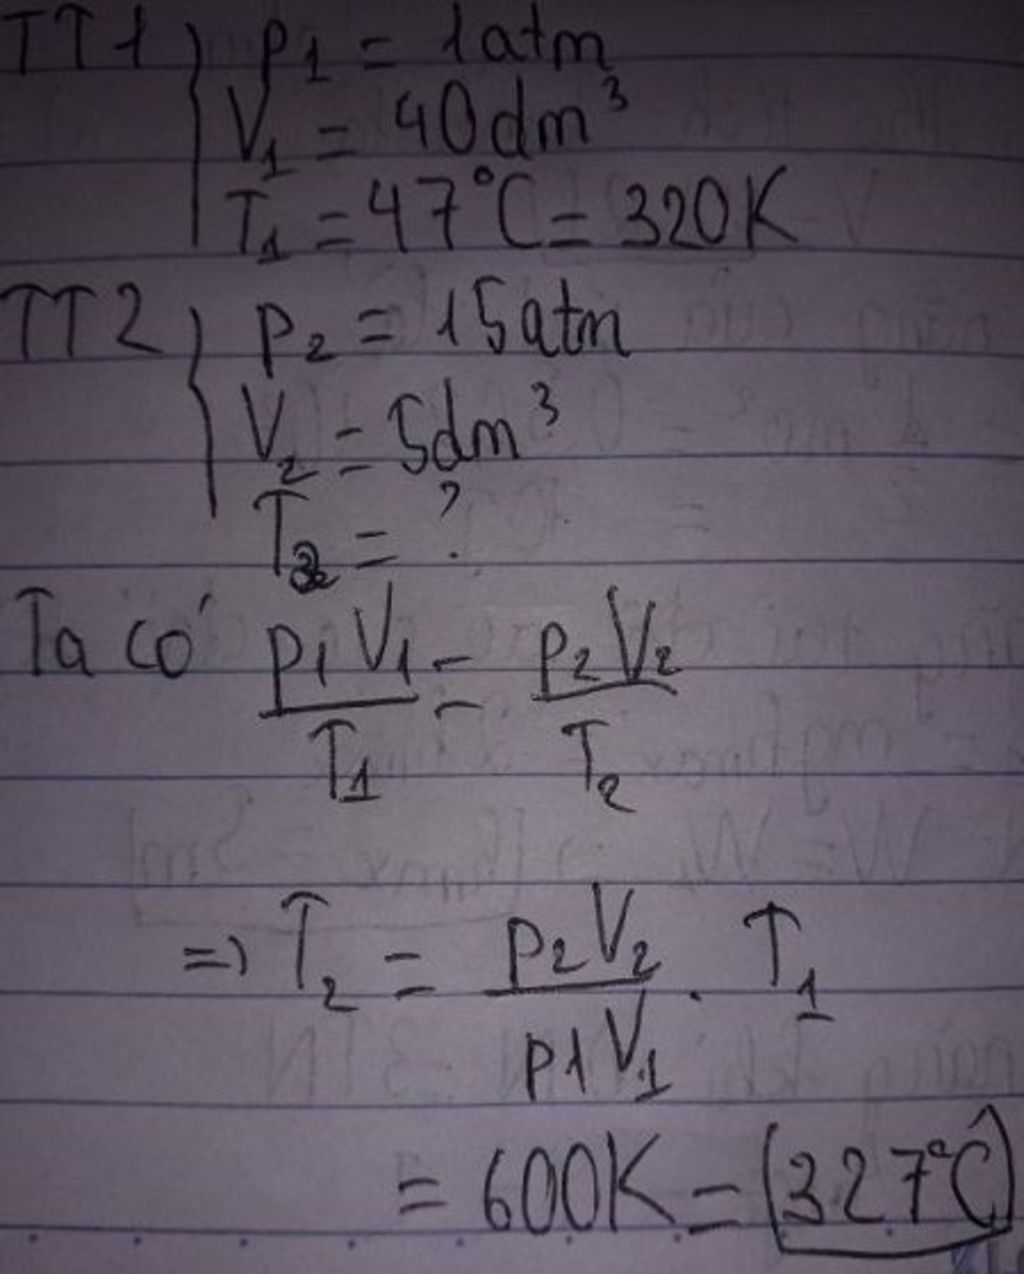 TT1 { p₁ = 1atm
V₁ = 40dm³
T₁ = 47°C = 320K
TT2 { p₂ = 15atm
V₂ = 5dm³
T₂ = ?
Ta có p₁V₁/T₁ = p₂V₂/T₂
=> T₂ = p₂V₂/p1V₁ . T₁
= 600K = 327°C